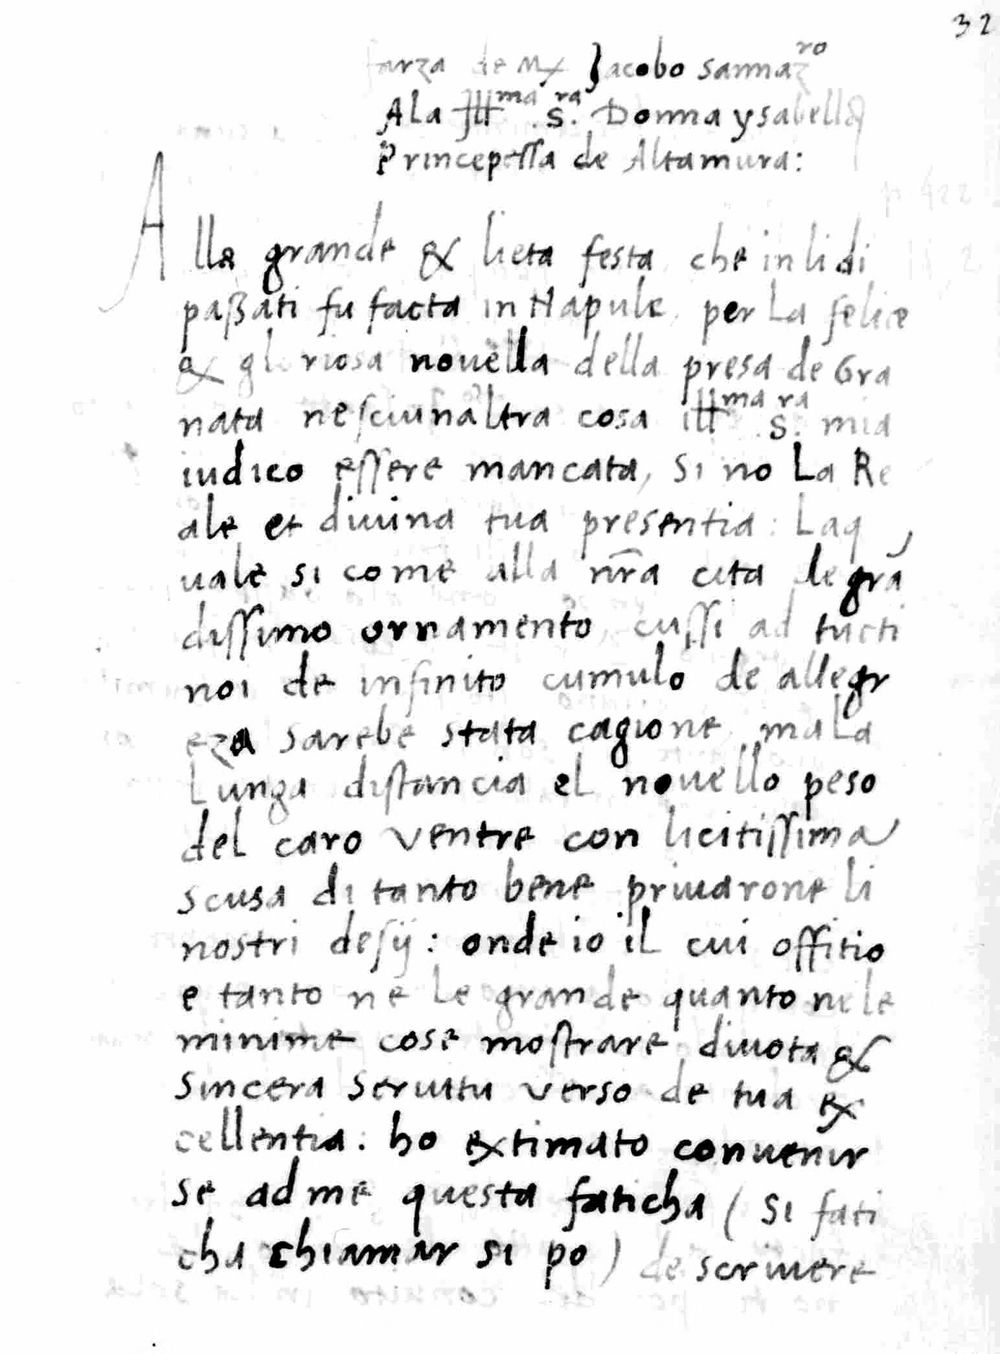 32
farza de Mx Jacobo Sannazro
A la Illma Sra. Donna ysabella
Princepessa de Altamura:
Alla grande & lieta festa che in li di
paßati fu facta in Napule per La felice
& gloriosa novella della presa de Gra
nata nesciunaltra cosa Illma Sra. mia
iudico essere mancata, Si no La Re
ale et divina tua presentia: Laq
uale si come alla nr̄a cita de grā
dissimo ornamento, cussi ad tucti
noi de infinito cumulo de allegr
eza sarebe stata cagione ma La
Lunga distancia el nouello peso
del caro ventre con licitissima
scusa di tanto bene priuarone li
nostri desij: onde io il cui offitio
e tanto ne Le grande quanto ne le
minime cose mostrare diuota &
Sincera seruitu verso de tua ex
cellentia: ho extimato conuenir
se ad me questa faticha (Si fati
cha chiamar si po) de scriuere